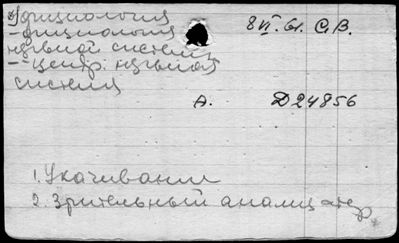 физиология
— физиология
нервной системы
— центр. нервная
система
8 VI. 61. С.В.
А. Д24856
1. Укачивание
2. Зрительный анализатор